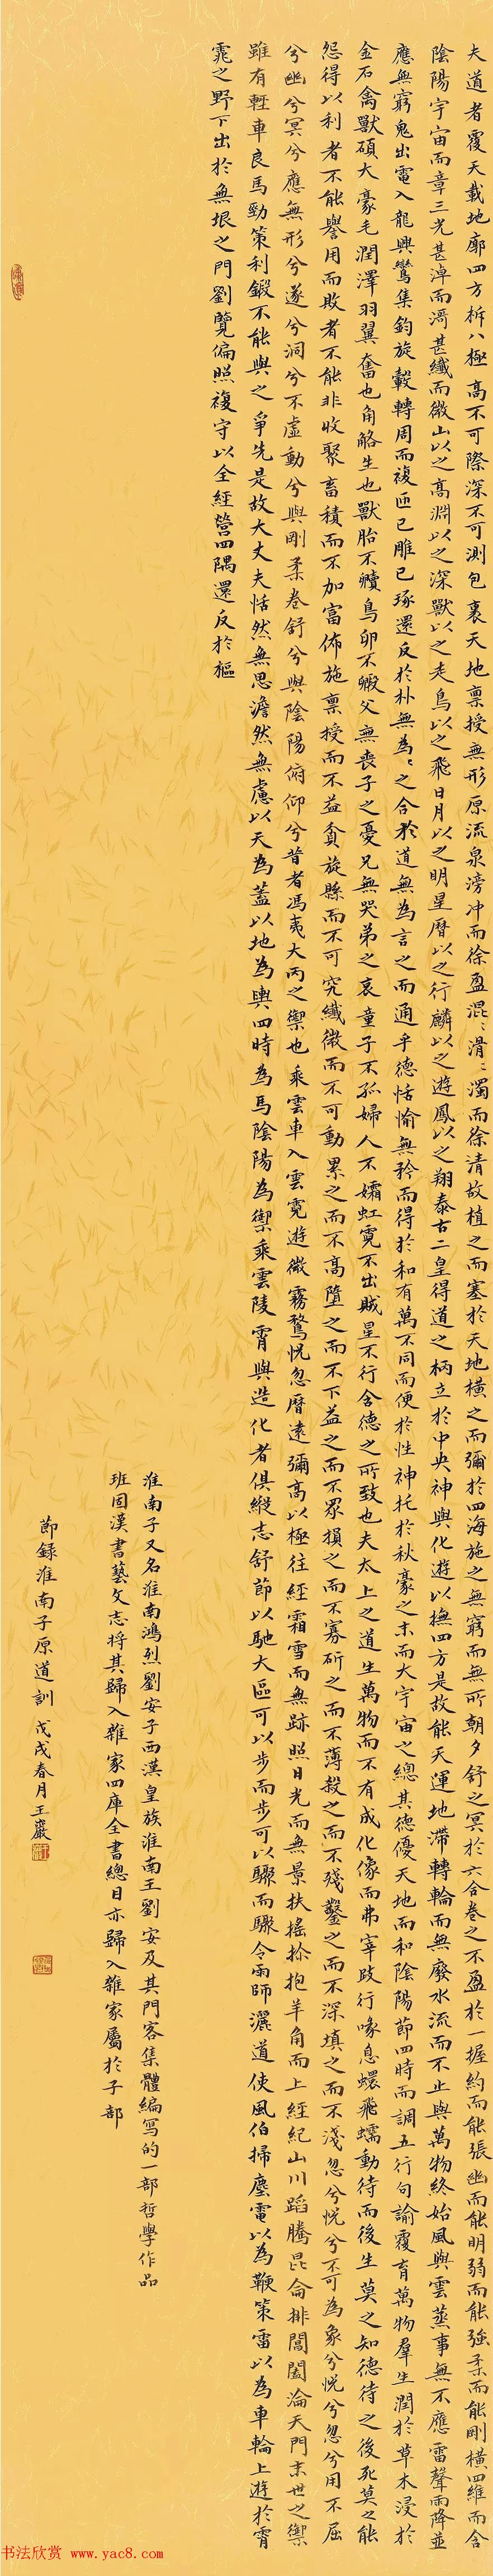 夫道者覆天載地廓四方柝八極高不可際深不可測包裹天地禀授無形原流泉滂冲而徐盈混〻滑〻濁而徐清故植之而塞於天地橫之而彌於四海施之無窮而無所朝夕舒之冥於六合卷之不盈於一握約而能張幽而能明弱而能強柔而能剛橫四維而含
陰陽宇宙而章三光甚淖而滒甚纖而微山以之高淵以之深獸以之走鳥以之飛日月以之明星曆以之行麟以之遊鳳以之翔泰古二皇得道之柄立於中央神與化遊以撫四方是故能天運地滯轉輪而無廢水流而不止與萬物終始風與雲蒸事無不應雷聲雨降並
應無窮鬼出電入龍興鸞集鈞旋轂轉周而複匝已雕已琢還反於朴無為〻之合於道無為言之而通乎德恬愉無矜而得於和有萬不同而便於性神托於秋豪之末而大宇宙之總其德優天地而和陰陽節四時而調五行句諭覆育萬物羣生潤於草木浸於
金石禽獸碩大豪毛潤澤羽翼奮也角觡生也獸胎不贕鳥卵不毈父無喪子之憂兄無哭弟之哀童子不孤婦人不孀虹霓不出賊星不行含德之所致也夫太上之道生萬物而不有成化像而弗宰跂行喙息蠉飛蠕動待而後生莫之知德待之後死莫之能
怨得以利者不能譽用而敗者不能非收聚畜積而不加富佈施禀授而不益貧旋縣而不可究纖微而不可動累之而不高墮之而不下益之而不眾損之而不寡斫之而不薄殺之而不殘鑿之而不深填之而不淺忽兮怳兮不可為象兮怳兮忽兮用不屈
兮幽兮冥兮應無形兮遂兮洞兮不虛動兮與剛柔卷舒兮與陰陽俯仰兮昔者馮夷大丙之禦也乘雲車入雲霓遊微霧騖怳忽曆遠彌高以極往經霜雪而無跡照日光而無景扶搖抮抱羊角而上經紀山川蹈騰昆侖排閶闔淪天門末世之禦
雖有輕車良馬勁策利鍛不能與之爭先是故大丈夫恬然無思澹然無慮以天為蓋以地為輿四時為馬陰陽為禦乘雲陵霄與造化者俱縱志舒節以馳大區可以步而步可以驟而驟令雨師灑道使風伯掃塵電以為鞭策雷以為車輪上遊於霄
雿之野下出於無垠之門劉覽偏照複守以全經營四隅還反於樞
淮南子又名淮南鴻烈劉安子西漢皇族淮南王劉安及其門客集體編寫的一部哲學作品
班固漢書藝文志將其歸入雜家四庫全書總目亦歸入雜家屬於子部
節錄淮南子原道訓 戊戌春月王巖
书法欣赏 www.yac8.com